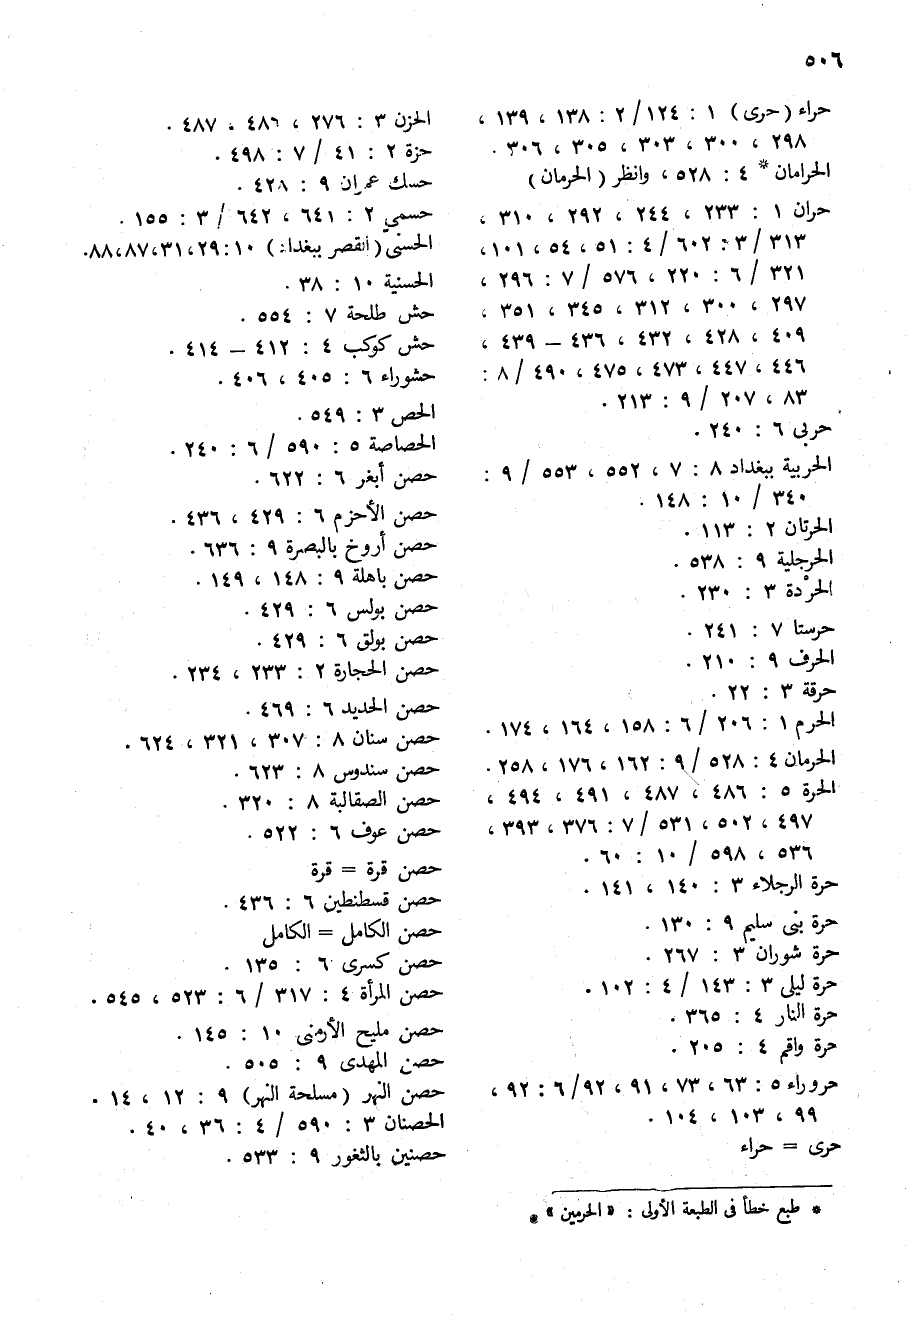 ٥٠٦
حراء (حرى) ١ : ١٢٤/ ٢ : ١٣٨ ، ١٣٩ ،
٢٩٨ ، ٣٠٠ ، ٣٠٣ ، ٣٠٥ ، ٣٠٦ .
الحرامان * ٤ : ٥٢٨ ، وانظر (الحرمان)
حران ١ : ٢٣٣ ، ٢٤٤ ، ٢٩٢ ، ٣١٠ ،
٣١٣ /٣ : ٦٠٢ /٤ : ٥١ ، ٥٤ ، ١٠١،
٣٢١ / ٦ : ٢٢٠ ، ٥٧٦ / ٧ : ٢٩٦ ،
٢٩٧ ، ٣٠٠ ، ٣١٢ ، ٣٤٥ ، ٣٥١ ،
٤٠٩ ، ٤٢٨ ، ٤٣٢ ، ٤٣٦ – ٤٣٩ ،
٤٤٦ ، ٤٤٧ ، ٤٧٣ ، ٤٧٥ ، ٤٩٠ / ٨ :
٨٣ ، ٢٠٧ / ٩ : ٢١٣ .
حربى ٦ : ٢٤٠ .
الحربية ببغداد ٨ : ٧ ، ٥٥٢ ، ٥٥٣ / ٩ :
٣٤٠ / ١٠ : ١٤٨ .
الحرتان ٢ : ١١٣ .
الحرجلية ٩ : ٥٣٨ .
الحرْدة ٣ : ٢٣٠ .
حرستا ٧ : ٢٤١ .
الحرف ٩ : ٢١٠ .
حرقة ٣ : ٢٢ .
الحرم ١ : ٢٠٦ / ٦ : ١٥٨ ، ١٦٤ ، ١٧٤ .
الحرمان ٤ : ٥٢٨ / ٩ : ١٦٢ ، ١٧٦ ، ٢٥٨ .
الحرة ٥ : ٤٨٦ ، ٤٨٧ ، ٤٩١ ، ٤٩٤ ،
٤٩٧ ، ٥٠٢ ، ٥٣١ / ٧ : ٣٧٦ ، ٣٩٣ ،
٥٣٦ ، ٥٩٨ / ١٠ : ٦٠ .
حرة الرجلاء ٣ : ١٤٠ ، ١٤١ .
حرة بنى سليم ٩ : ١٣٠ .
حرة شوران ٣ : ٢٦٧ .
حرة ليلى ٣ : ١٤٣ / ٤ : ١٠٢ .
حرة النار ٤ : ٣٦٥ .
حرة واقم ٤ : ٢٠٥ .
حروراء ٥ : ٦٣ ، ٧٣ ، ٩١ ، ٩٢/ ٦ : ٩٢ ،
٩٩ ، ١٠٣ ، ١٠٤ .
حرى = حراء
الحزن ٣ : ٢٧٦ ، ٤٨٦ ، ٤٨٧ .
حزة ٢ : ٤١ / ٧ : ٤٩٨ .
حسك عمران ٩ : ٤٢٨ .
حسمي ٢ : ٦٤١ ، ٦٤٢ / ٣ : ١٥٥ .
الحسنى (القصر ببغداد) ١٠ : ٢٩، ٣١، ٨٧، ٨٨.
الحسنية ١٠ : ٣٨ .
حش طلحة ٧ : ٥٥٤ .
حش كوكب ٤ : ٤١٢ – ٤١٤ .
حشوراء ٦ : ٤٠٥ ، ٤٠٦ .
الحص ٣ : ٥٤٩ .
الحصاصة ٥ : ٥٩٠ / ٦ : ٢٤٠ .
حصن أبغر ٦ : ٦٢٢ .
حصن الأحزم ٦ : ٤٢٩ ، ٤٣٦ .
حصن أروخ بالبصرة ٩ : ٦٣٦ .
حصن باهلة ٩ : ١٤٨ ، ١٤٩ .
حصن بولس ٦ : ٤٢٩ .
حصن بولق ٦ : ٤٢٩ .
حصن الحجارة ٢ : ٢٣٣ ، ٢٣٤ .
حصن الحديد ٦ : ٤٦٩ .
حصن سنان ٨ : ٣٠٧ ، ٣٢١ ، ٦٢٤ .
حصن سندوس ٨ : ٦٢٣ .
حصن الصقالبة ٨ : ٣٢٠ .
حصن عوف ٦ : ٥٢٢ .
حصن قرة = قرة
حصن قسطنطين ٦ : ٤٣٦ .
حصن الكامل = الكامل
حصن كسرى ٦ : ١٣٥ .
حصن المرأة ٤ : ٣١٧ / ٦ : ٥٢٣ ، ٥٤٥ .
حصن مليح الأرمنى ١٠ : ١٤٥ .
حصن المهدى ٩ : ٥٠٥ .
حصن النهر (مسلحة النهر) ٩ : ١٢ ، ١٤ .
الحصنان ٣ : ٥٩٠ / ٤ : ٣٦ ، ٤٠ .
حصنين بالثغور ٩ : ٥٣٣ .
* طبع خطأ فى الطبعة الأولى : « الحرمين » *